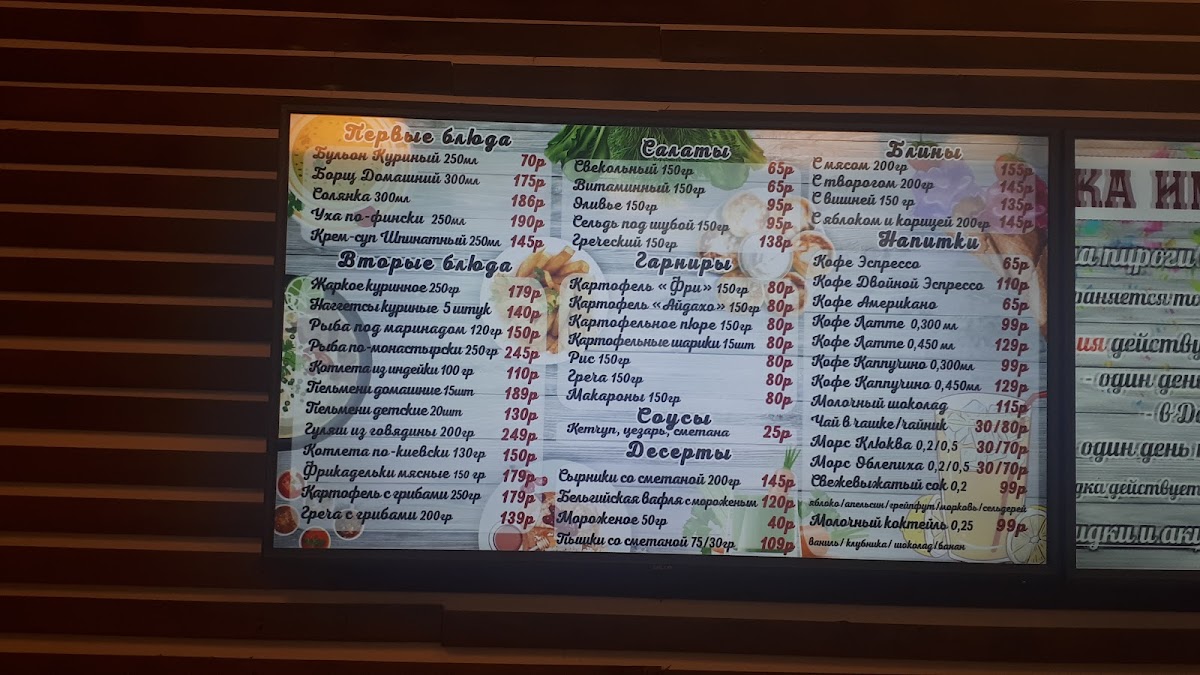 Первые блюда
Бульон Куриный 250мл 70р
Борщ Домашний 300мл 175р
Солянка 300мл 186р
Уха по-фински 250мл 190р
Крем-суп Шпинатный 250мл 145р
Вторые блюда
Жаркое куриное 250гр 179р
Наггетсы куриные 5 штук 140р
Рыба под маринадом 120гр 150р
Рыба по-монастырски 250гр 245р
Котлета из индейки 100 гр 110р
Пельмени домашние 15шт 189р
Пельмени детские 20шт 130р
Гуляш из говядины 200гр 249р
Котлета по-киевски 130гр 150р
Фрикадельки мясные 150 гр 179р
Картофель с грибами 250гр 179р
Греча с грибами 200гр 139р
Салаты
Свекольный 150гр 65р
Витаминный 150гр 65р
Оливье 150гр 95р
Сельдь под шубой 150гр 95р
Греческий 150гр 138р
Гарниры
Картофель «Фри» 150гр 80р
Картофель «Айдахо» 150гр 80р
Картофельное пюре 150гр 80р
Картофельные шарики 15шт 80р
Рис 150гр 80р
Греча 150гр 80р
Макароны 150гр 80р
Соусы
Кетчуп, цезарь, сметана 25р
Десерты
Сырники со сметаной 200гр 145р
Бельгийская вафля с мороженым 120р
Мороженое 50гр 40р
Пышки со сметаной 75/30гр 109р
Блины
С мясом 200гр 155р
С творогом 200гр 145р
С вишней 150 гр 135р
С яблоком и корицей 200гр 145р
Напитки
Кофе Эспрессо 65р
Кофе Двойной Эспрессо 110р
Кофе Американо 65р
Кофе Латте 0,300 мл 99р
Кофе Латте 0,450 мл 129р
Кофе Каппучино 0,300мл 99р
Кофе Каппучино 0,450мл 129р
Молочный шоколад 115р
Чай в чашке/чайник 30/80р
Морс Клюква 0,2/0,5 30/70р
Морс Облепиха 0,2/0,5 30/70р
Свежевыжатый сок 0,2 99р
яблоко/апельсин/грейпфут/морковь/сельдерей
Молочный коктейль 0,25 99р
ваниль/ клубника/ шоколад/банан
пироги
действу
- один день
- в
один день
действует